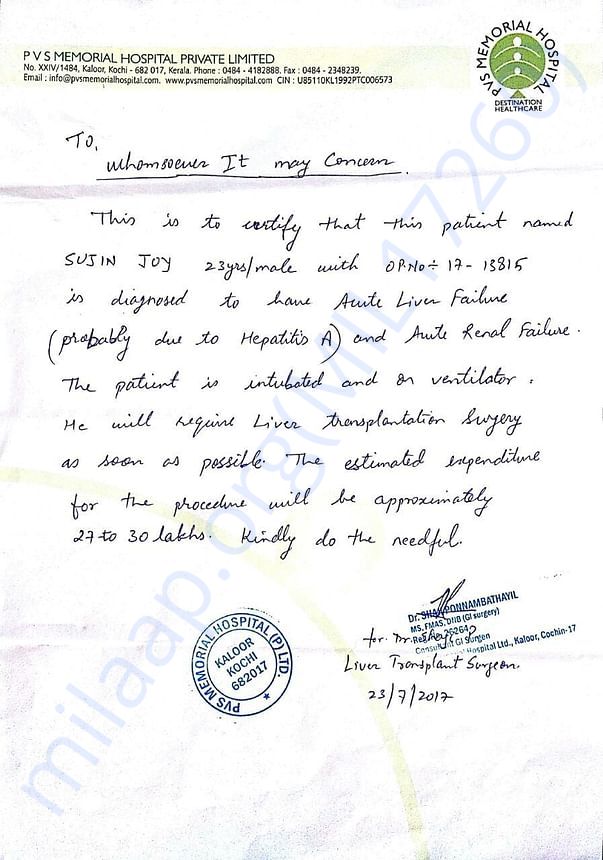 P V S MEMORIAL HOSPITAL PRIVATE LIMITED
No. XXIV/1484, Kaloor, Kochi - 682 017, Kerala. Phone : 0484 - 4182888. Fax : 0484 - 2348239.
Email : info@pvsmemorialhospital.com www.pvsmemorialhospital.com CIN : U85110KL1992PTC006573
PVS MEMORIAL HOSPITAL
DESTINATION
HEALTHCARE
To,
Whomsoever It may Concern.
This is to certify that this patient named
SUJIN JOY 23yrs/male with OP.No÷ 17-13815
is diagnosed to have Acute Liver Failure
(probably due to Hepatitis A) and Acute Renal Failure.
The patient is intubated and on ventilator.
He will require Liver transplantation Surgery
as soon as possible. The estimated expenditure
for the procedure will be approximately
27 to 30 lakhs. Kindly do the needful.
Dr. PONNAMBATHAYIL
MS, FMAS, DNB (GI surgery)
Reg.No 26264
Consultant GI Surgeon
Hospital Ltd., Kaloor, Cochin-17
for Dr.
Liver Transplant Surgeon
23/7/2017
PVS MEMORIAL HOSPITAL (P) LTD.
KALOOR
KOCHI
682017
milaap.org(MIL172260)